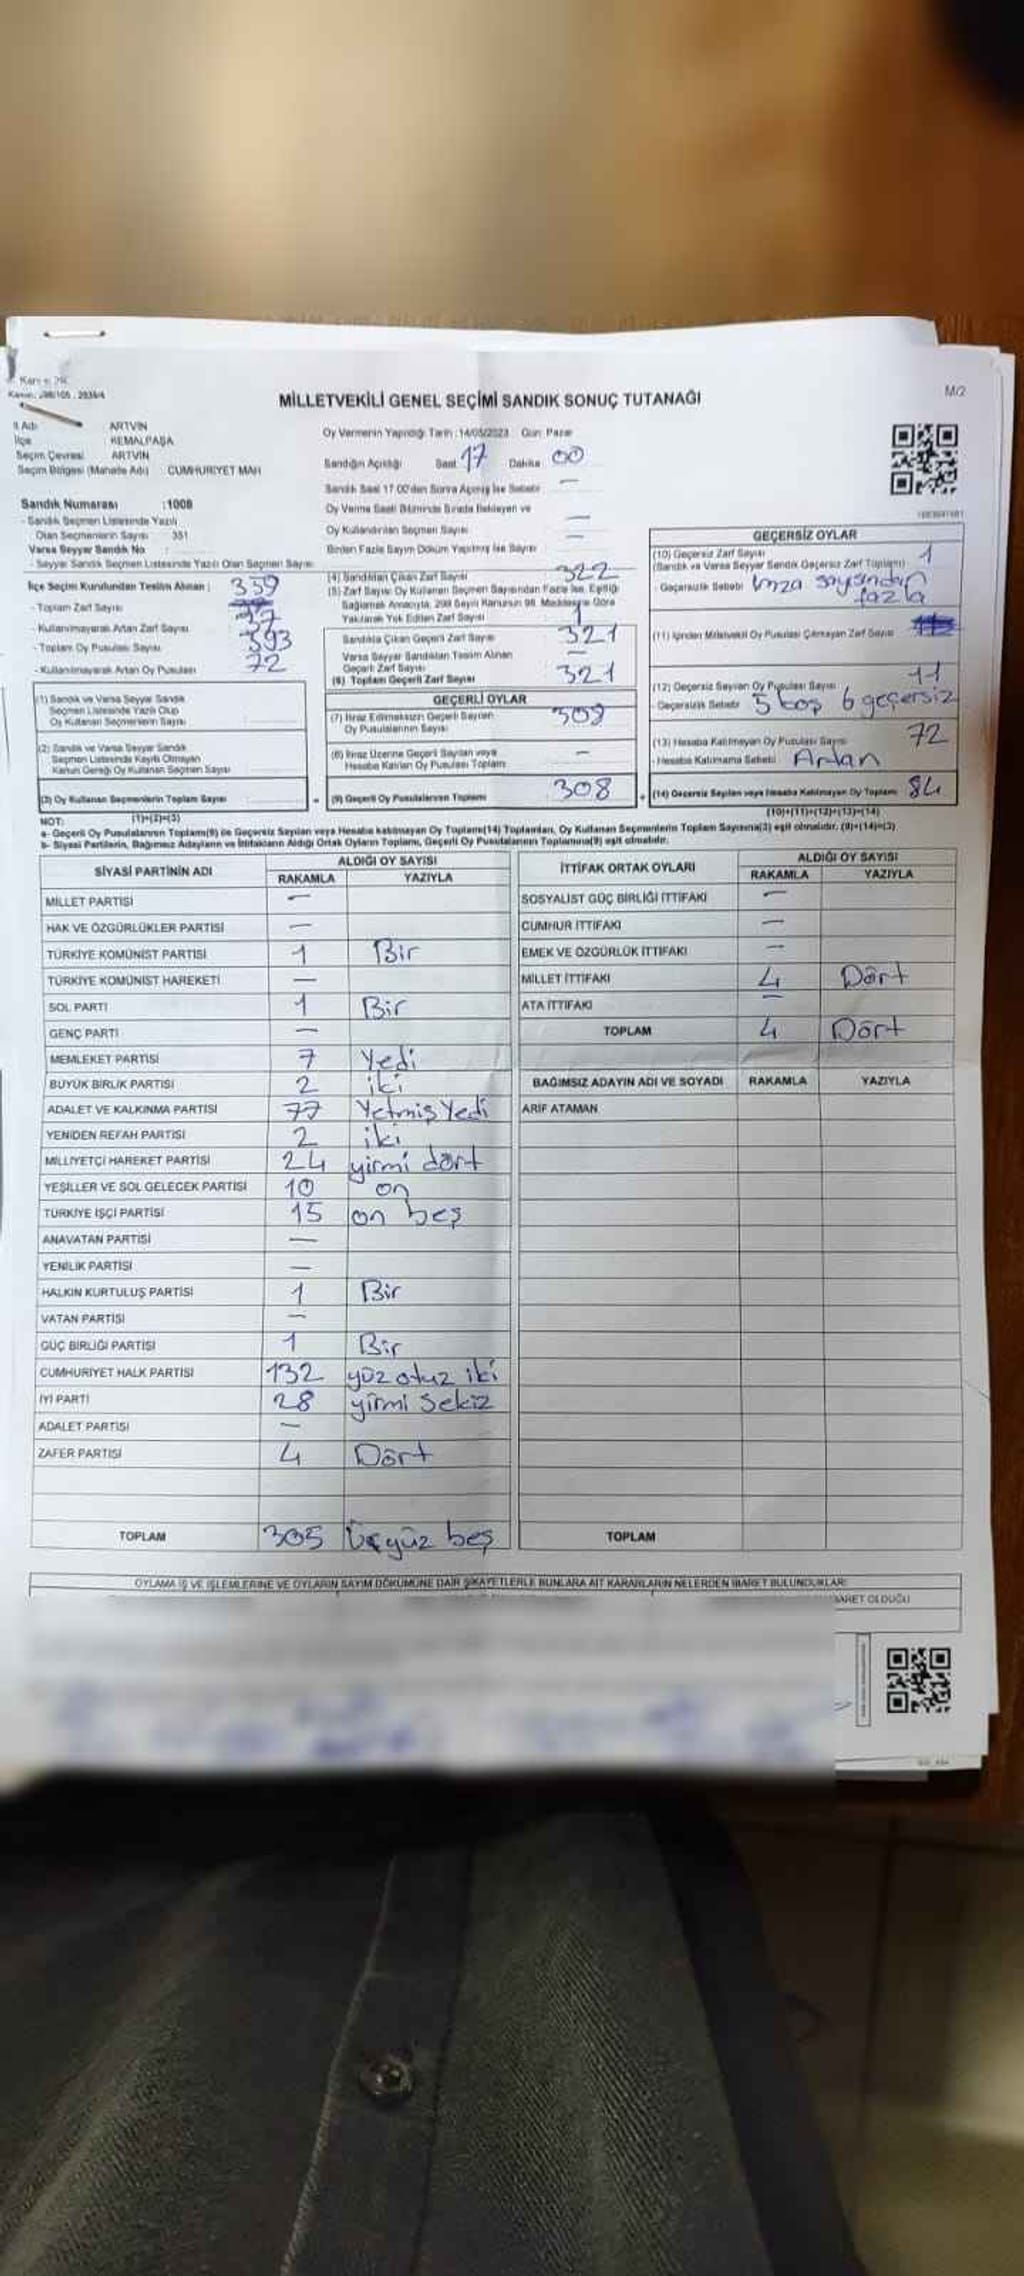 MİLLETVEKİLİ GENEL SEÇİMİ SANDIK SONUÇ TUTANAĞI
M/2
İl Adı : ARTVİN
İlçe : KEMALPAŞA
Seçim Çevresi : ARTVİN
Seçim Bölgesi (Mahalle Adı) : CUMHURİYET MAH
Sandık Numarası :1008
- Sandık Seçmen Listesinde Yazılı
Olan Seçmenlerin Sayısı : 351
Varsa Seyyar Sandık No :
- Seyyar Sandık Seçmen Listesinde Yazılı Olan Seçmen Sayısı
İlçe Seçim Kurulundan Teslim Alınan : 359
- Toplam Zarf Sayısı
- Kullanılmayarak Artan Zarf Sayısı 37
- Toplam Oy Pusulası Sayısı 393
- Kullanılmayarak Artan Oy Pusulası 72
(1) Sandık ve Varsa Seyyar Sandık
Seçmen Listesinde Yazılı Olup
Oy Kullanan Seçmenlerin Sayısı
(2) Sandık ve Varsa Seyyar Sandık
Seçmen Listesinde Kayıtlı Olmayan
Kanun Gereği Oy Kullanan Seçmen Sayısı
(3) Oy Kullanan Seçmenlerin Toplam Sayısı
(1)+(2)=(3)
Oy Vermenin Yapıldığı Tarih :14/05/2023 Gün: Pazar
Sandığın Açıldığı Saat 17 Dakika 00
Sandık Saat 17.00'den Sonra Açılmış İse Sebebi : —
Oy Verme Saati Bitiminde Sırada Bekleyen ve
Oy Kullandırılan Seçmen Sayısı —
Birden Fazla Sayım Döküm Yapılmış İse Sayısı —
(4) Sandıktan Çıkan Zarf Sayısı 322
(5) Zarf Sayısı Oy Kullanan Seçmen Sayısından Fazla İse, Eşitliği
Sağlamak Amacıyla, 298 Sayılı Kanunun 98. Maddesine Göre
Yakılarak Yok Edilen Zarf Sayısı 1
Sandıkta Çıkan Geçerli Zarf Sayısı 321
Varsa Seyyar Sandıktan Teslim Alınan
Geçerli Zarf Sayısı —
(6) Toplam Geçerli Zarf Sayısı 321
GEÇERLİ OYLAR
(7) İtiraz Edilmeksizin Geçerli Sayılan
Oy Pusulalarının Sayısı 309
(8) İtiraz Üzerine Geçerli Sayılan veya
Hesaba Katılan Oy Pusulası Toplamı —
(9) Geçerli Oy Pusulalarının Toplamı 308
GEÇERSİZ OYLAR
(10) Geçersiz Zarf Sayısı 1
(Sandık ve Varsa Seyyar Sandık Geçersiz Zarf Toplamı)
- Geçersizlik Sebebi İmza sayısından
fazla
(11) İçinden Milletvekili Oy Pusulası Çıkmayan Zarf Sayısı
(12) Geçersiz Sayılan Oy Pusulası Sayısı 11
Geçersizlik Sebebi 5 boş 6 geçersiz
(13) Hesaba Katılmayan Oy Pusulası Sayısı 72
- Hesaba Katılmama Sebebi Artan
(14) Geçersiz Sayılan veya Hesaba Katılmayan Oy Toplamı 84
(10)+(11)+(12)+(13)=(14)
NOT:
a- Geçerli Oy Pusulalarının Toplamı(9) ile Geçersiz Sayılan veya Hesaba katılmayan Oy Toplamı(14) Toplamları, Oy Kullanan Seçmenlerin Toplam Sayısına(3) eşit olmalıdır. (9)+(14)=(3)
b- Siyasi Partilerin, Bağımsız Adayların ve İttifakların Aldığı Ortak Oyların Toplamı, Geçerli Oy Pusulalarının Toplamına(9) eşit olmalıdır.
SİYASİ PARTİNİN ADI ALDIĞI OY SAYISI
RAKAMLA YAZIYLA
MİLLET PARTİSİ —
HAK VE ÖZGÜRLÜKLER PARTİSİ —
TÜRKİYE KOMÜNİST PARTİSİ 1 Bir
TÜRKİYE KOMÜNİST HAREKETİ —
SOL PARTİ 1 Bir
GENÇ PARTİ —
MEMLEKET PARTİSİ 7 Yedi
BÜYÜK BİRLİK PARTİSİ 2 iki
ADALET VE KALKINMA PARTİSİ 77 Yetmiş Yedi
YENİDEN REFAH PARTİSİ 2 iki
MİLLİYETÇİ HAREKET PARTİSİ 24 yirmi dört
YEŞİLLER VE SOL GELECEK PARTİSİ 10 on
TÜRKİYE İŞÇİ PARTİSİ 15 on beş
ANAVATAN PARTİSİ —
YENİLİK PARTİSİ —
HALKIN KURTULUŞ PARTİSİ 1 Bir
VATAN PARTİSİ —
GÜÇ BİRLİĞİ PARTİSİ 1 Bir
CUMHURİYET HALK PARTİSİ 132 yüz otuz iki
İYİ PARTİ 28 yirmi sekiz
ADALET PARTİSİ —
ZAFER PARTİSİ 4 Dört
TOPLAM 305 Üçyüz beş
İTTİFAK ORTAK OYLARI ALDIĞI OY SAYISI
RAKAMLA YAZIYLA
SOSYALİST GÜÇ BİRLİĞİ İTTİFAKI —
CUMHUR İTTİFAKI —
EMEK VE ÖZGÜRLÜK İTTİFAKI —
MİLLET İTTİFAKI 4 Dört
ATA İTTİFAKI —
TOPLAM 4 Dört
BAĞIMSIZ ADAYIN ADI VE SOYADI RAKAMLA YAZIYLA
ARİF ATAMAN
TOPLAM
OYLAMA İŞ VE İŞLEMLERİNE VE OYLARIN SAYIM DÖKÜMÜNE DAİR ŞİKAYETLERLE BUNLARA AİT KARARLARIN NELERDEN İBARET BULUNDUKLARI
İBARET OLDUĞU